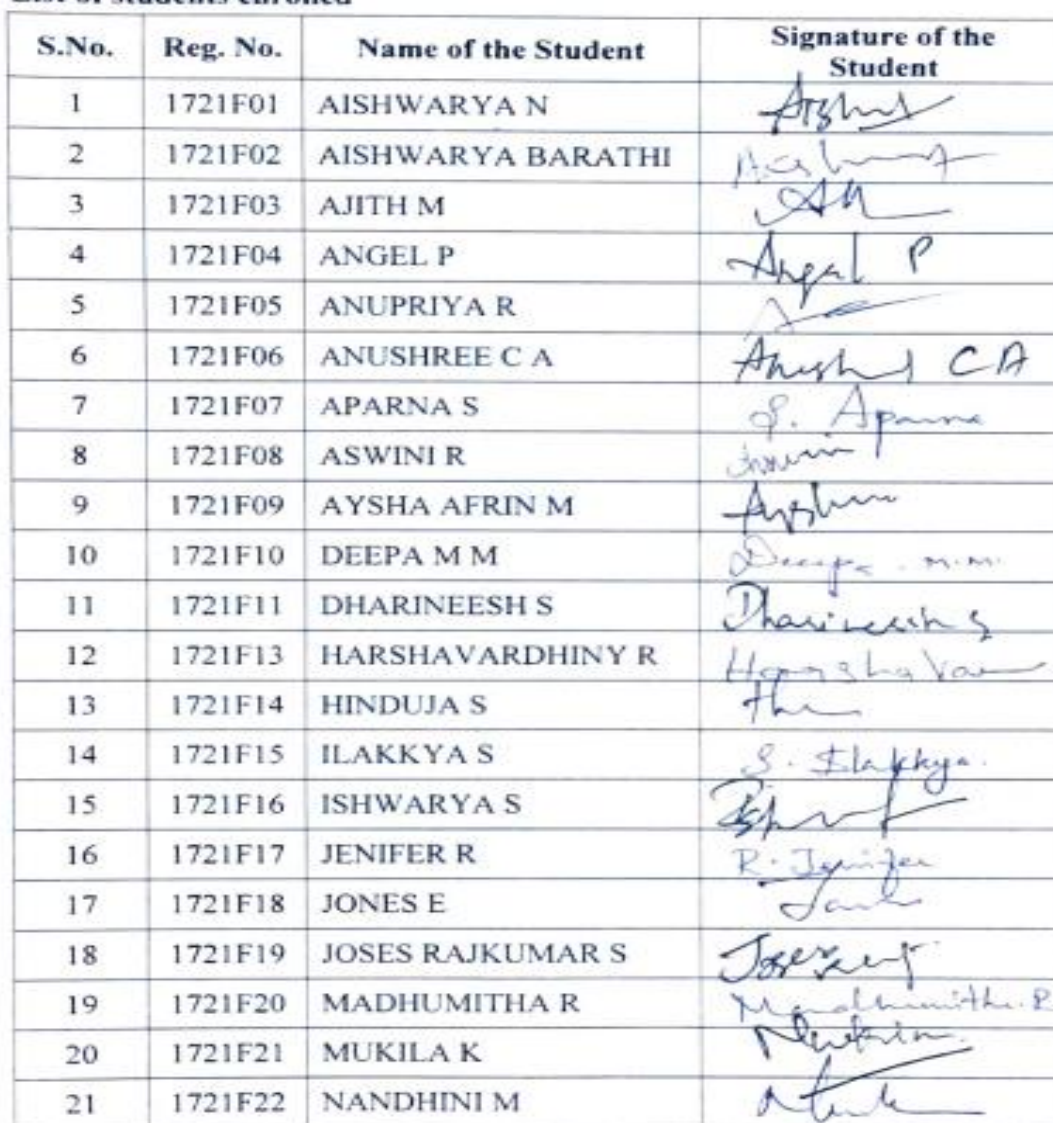 List of students enrolled
S.No. Reg. No. Name of the Student Signature of the Student
1 1721F01 AISHWARYA N
2 1721F02 AISHWARYA BARATHI
3 1721F03 AJITH M
4 1721F04 ANGEL P Angel P
5 1721F05 ANUPRIYA R
6 1721F06 ANUSHREE C A Anushree C A
7 1721F07 APARNA S S. Aparna
8 1721F08 ASWINI R
9 1721F09 AYSHA AFRIN M
10 1721F10 DEEPA M M Deepa . M.M.
11 1721F11 DHARINEESH S Dharineesh S
12 1721F13 HARSHAVARDHINY R
13 1721F14 HINDUJA S
14 1721F15 ILAKKYA S S. Ilakkya.
15 1721F16 ISHWARYA S
16 1721F17 JENIFER R R. Jenifer
17 1721F18 JONES E
18 1721F19 JOSES RAJKUMAR S
19 1721F20 MADHUMITHA R Madhumitha. R
20 1721F21 MUKILA K
21 1721F22 NANDHINI M